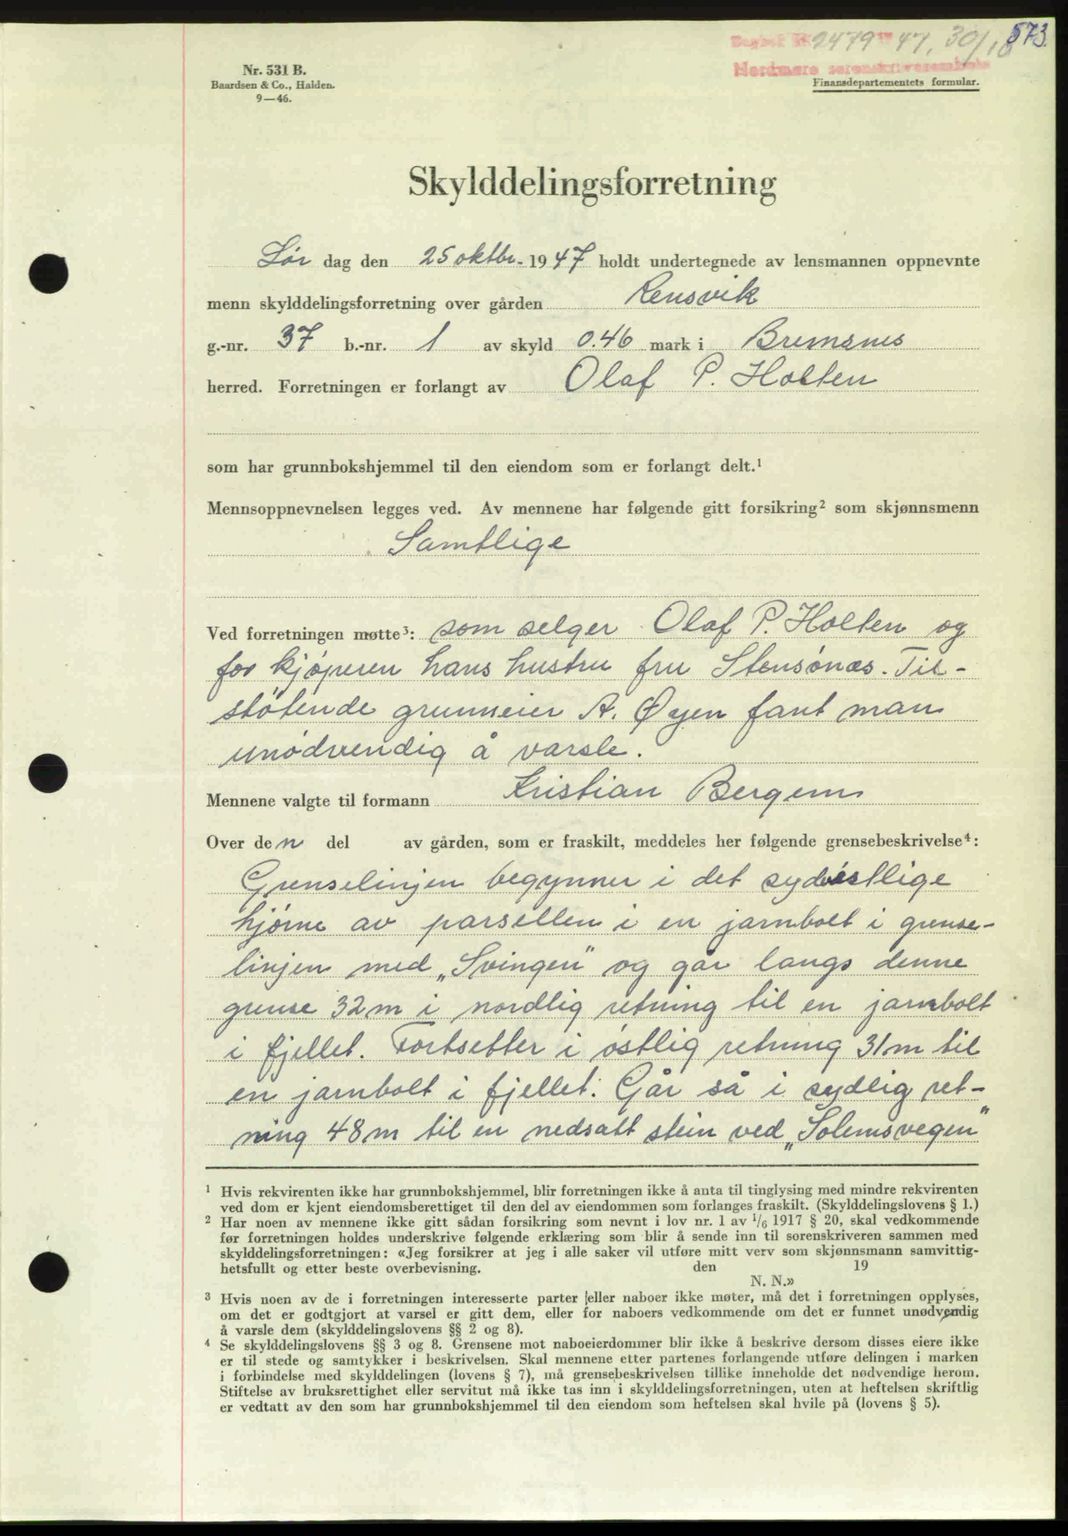 573.
Dagbok nr. 2479 19 47, 30/10
Nordmøre sorenskriverembete
Nr. 531 B.
Baardsen & Co., Halden.
9—46.
Finansdepartementets formular.
Skylddelingsforretning
Lør dag den 25 oktbr. 1947 holdt undertegnede av lensmannen oppnevnte
menn skylddelingsforretning over gården Rensvik
g.-nr. 37 b.-nr. 1 av skyld 0.46 mark i Bremsnes
herred. Forretningen er forlangt av Olaf P. Holten
som har grunnbokshjemmel til den eiendom som er forlangt delt.¹
Mennsoppnevnelsen legges ved. Av mennene har følgende gitt forsikring² som skjønnsmenn
Samtlige
Ved forretningen møtte³: som selger Olaf P. Holten og
for kjøperen hans hustru fru Stensønæs. Til-
støtende grunneier A. Øyen fant man
unødvendig å varsle.
Mennene valgte til formann Kristian Bergem
Over den del av gården, som er fraskilt, meddeles her følgende grensebeskrivelse⁴:
Grenselinjen begynner i det sydvestlige
hjørne av parsellen i en jarnbolt i grense-
linjen med „Svingen" og går langs denne
grense 32 m i nordlig retning til en jarnbolt
i fjellet. Fortsetter i østlig retning 31 m til
en jarnbolt i fjellet. Går så i sydlig ret-
ning 48 m til en nedsatt stein ved „Solemsvegen"
¹ Hvis rekvirenten ikke har grunnbokshjemmel, blir forretningen ikke å anta til tinglysing med mindre rekvirenten
ved dom er kjent eiendomsberettiget til den del av eiendommen som forlanges fraskilt. (Skylddelingslovens § 1.)
² Har noen av mennene ikke gitt sådan forsikring som nevnt i lov nr. 1 av 1/6 1917 § 20, skal vedkommende
før forretningen holdes underskrive følgende erklæring som blir å sende inn til sorenskriveren sammen med
skylddelingsforretningen: «Jeg forsikrer at jeg i alle saker vil utføre mitt verv som skjønnsmann samvittig-
hetsfullt og etter beste overbevisning. den 19
N. N.»
³ Hvis noen av de i forretningen interesserte parter eller naboer ikke møter, må det i forretningen opplyses,
om det er godtgjort at varsel er gitt dem, eller for naboers vedkommende om det er funnet unødvendig
å varsle dem (skylddelingslovens §§ 2 og 8).
⁴ Se skylddelingslovens §§ 3 og 8. Grensene mot naboeierdommer blir ikke å beskrive dersom disses eiere ikke
er til stede og samtykker i beskrivelsen. Skal mennene etter partenes forlangende utføre delingen i marken
i forbindelse med skylddelingen (lovens § 7), må grensebeskrivelsen tillike inneholde det nødvendige herom.
Stiftelse av bruksrettighet eller servitut må ikke tas inn i skylddelingsforretningen, uten at heftelsen skriftlig
er vedtatt av den som har grunnbokshjemmel til den eiendom som heftelsen skal hvile på (lovens § 5).